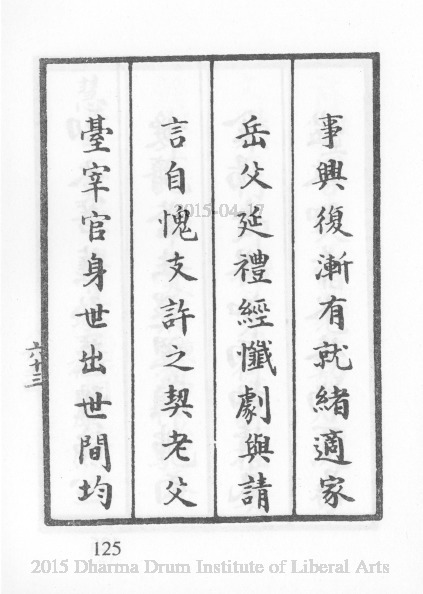 事興復漸有就緒適家
岳父延禮經懺劇與請
言自愧支許之契老父
臺宰官身世出世間均
六十三
125
2015-04-17
2015 Dharma Drum Institute of Liberal Arts